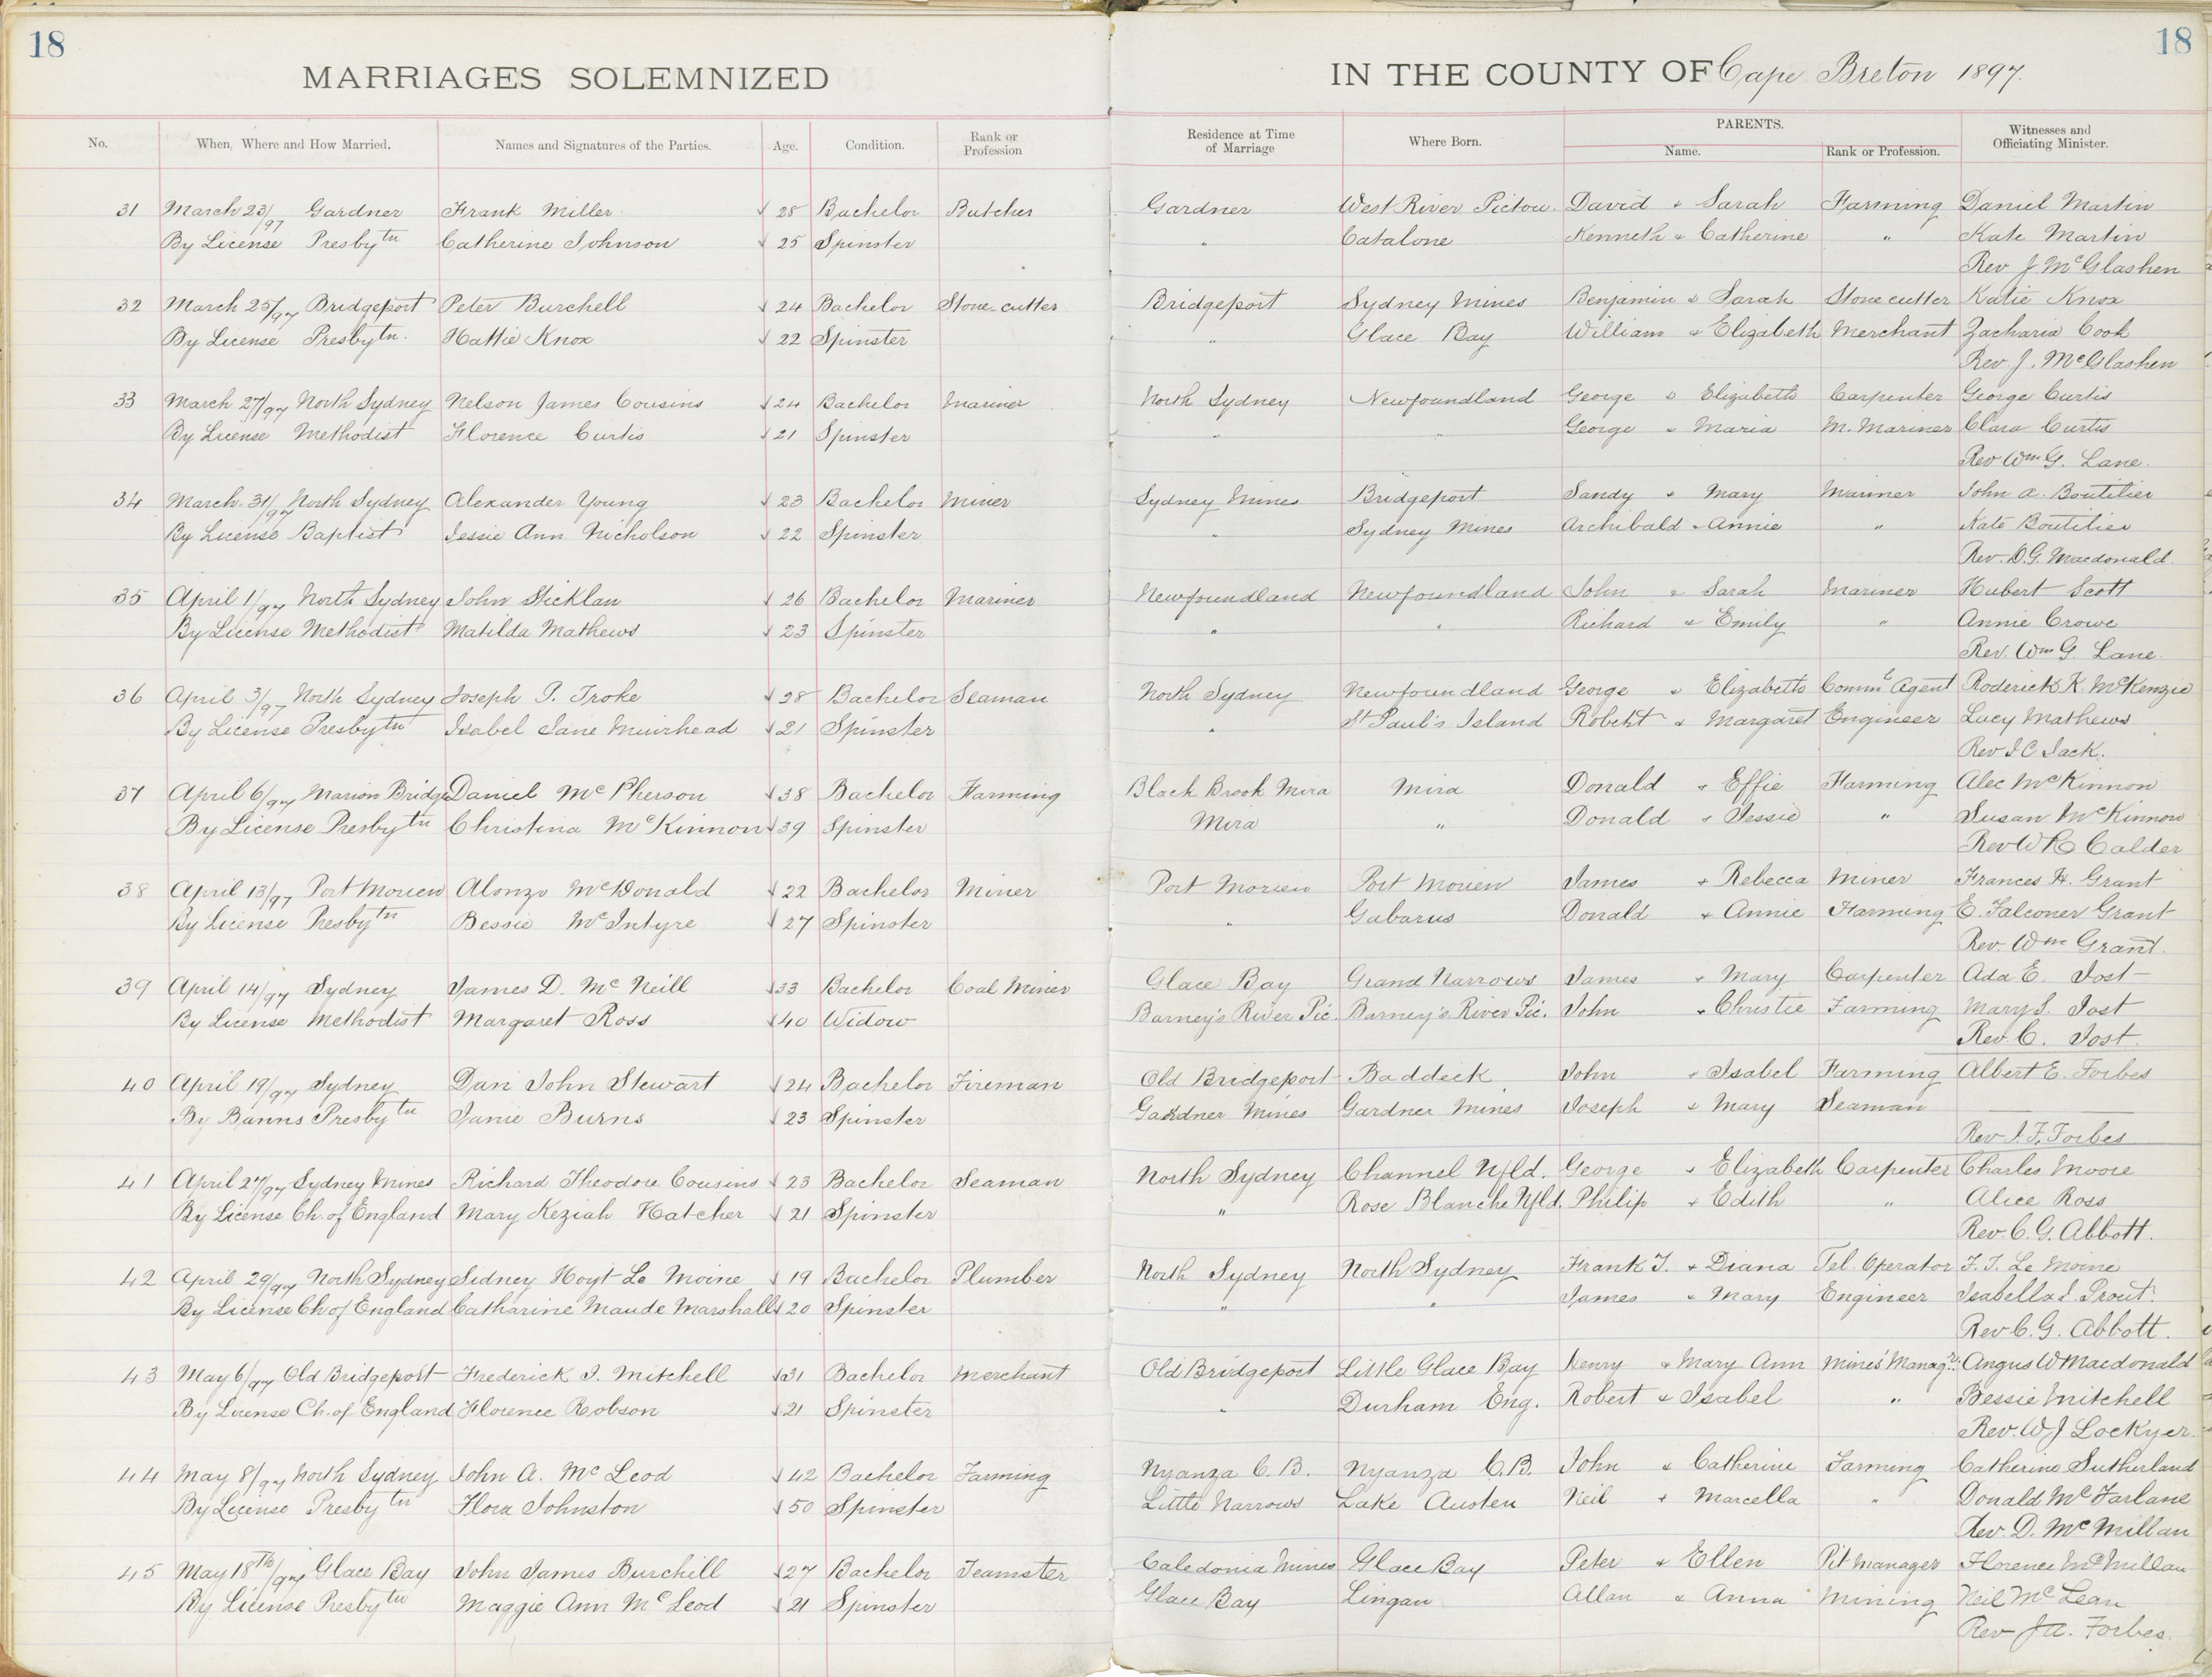 18
18
MARRIAGES SOLEMNIZED
IN THE COUNTY OF Cape Breton 1897.
No. When, Where and How Married. Names and Signatures of the Parties. Age. Condition. Rank or Profession Residence at Time of Marriage Where Born. PARENTS. Name. Rank or Profession. Witnesses and Officiating Minister.
31 March 23/97 Gardner Frank Miller √ 28 Bachelor Butcher Gardner West River Pictou. David & Sarah Farming Daniel Martin
By License Presbytn Catherine Johnson √ 25 Spinster " Catalone Kenneth & Catherine " Kate Martin
Rev J McGlashen
32 March 25/97 Bridgeport Peter Burchell √ 24 Bachelor Stone cutter Bridgeport Sydney Mines Benjamin & Sarah Stone cutter Katie Knox
By License Presbytn. Hattie Knox √ 22 Spinster " Glace Bay William & Elizabeth Merchant Zacharia Cook
Rev. J. McGlashen
33 March 27/97 North Sydney Nelson James Cousins √ 24 Bachelor Mariner North Sydney Newfoundland George & Elizabeth Carpenter George Curtis
By License Methodist Florence Curtis √ 21 Spinster " " George & Maria M. Mariner Clara Curtis
Rev Wm G. Lane.
34 March 31/97 North Sydney Alexander Young √ 23 Bachelor Miner Sydney Mines Bridgeport Sandy & Mary Mariner John A. Boutilier
By License Baptist Jessie Ann Nicholson √ 22 Spinster " Sydney Mines Archibald & Annie " Kate Boutilier
Rev. D.G. Macdonald.
35 April 1/97 North Sydney John Sticklan √ 26 Bachelor Mariner Newfoundland Newfoundland John & Sarah Mariner Hubert Scott
By License Methodist Matilda Mathews √ 23 Spinster " " Richard & Emily " Annie Crowe
Rev. Wm G. Lane.
36 April 3/97 North Sydney Joseph P. Troke √ 28 Bachelor Seaman North Sydney Newfoundland George & Elizabeth Comml Agent Roderick K. McKenzie
By License Presbytn Isabel Jane Muirhead √ 21 Spinster " St Paul's Island Robert & Margaret Engineer Lucy Mathews
Rev J C Jack.
37 April 6/97 Marion Bridge Daniel McPherson √ 38 Bachelor Farming Black Brook Mira Mira Donald & Effie Farming Alec McKinnon
By License Presbytn Christina McKinnon √ 39 Spinster Mira " Donald & Jessie " Susan McKinnon
Rev W R Calder
38 April 13/97 Port Morien Alonzo McDonald √ 22 Bachelor Miner Port Morien Port Morien James & Rebecca Miner Frances H. Grant
By License Presbytn Bessie McIntyre √ 27 Spinster " Gabarus Donald & Annie Farming E. Falconer Grant
Rev. Wm Grant.
39 April 14/97 Sydney James D. McNeill √ 33 Bachelor Coal Miner Glace Bay Grand Narrows James & Mary Carpenter Ada E. Jost
By License Methodist Margaret Ross √ 40 Widow Barney's River Pic. Barney's River Pic. John & Christie Farming Mary S. Jost
Rev. C. Jost.
40 April 19/97 Sydney Dan John Stewart √ 24 Bachelor Fireman Old Bridgeport Baddeck John & Isabel Farming Albert E. Forbes
By Banns Presbytn Janie Burns √ 23 Spinster Gardner Mines Gardner Mines Joseph & Mary Seaman
Rev J. F. Forbes
41 April 27/97 Sydney Mines Richard Theodore Cousins √ 23 Bachelor Seaman North Sydney Channel Nfld. George & Elizabeth Carpenter Charles Moore
By License Ch. of England Mary Keziah Hatcher √ 21 Spinster " Rose Blanche Nfld. Philip & Edith " Alice Ross
Rev. C. G. Abbott.
42 April 29/97 North Sydney Sidney Hoyt Le Moine √ 19 Bachelor Plumber North Sydney North Sydney Frank T. & Diana Tel. Operator F. T. Le Moine
By License Ch of England Catharine Maude Marshall √ 20 Spinster " " James & Mary Engineer Isabella J. Prout.
Rev C. G. Abbott.
43 May 6/97 Old Bridgeport Frederick J. Mitchell √ 31 Bachelor Merchant Old Bridgeport Little Glace Bay Henry & Mary Ann Mines' Managr. Angus W Macdonald
By License Ch. of England Florence Robson √ 21 Spinster " Durham Eng. Robert & Isabel " Bessie Mitchell
Rev. W J Lockyer.
44 May 8/97 North Sydney John A. McLeod √ 42 Bachelor Farming Nyanza C. B. Nyanza C.B. John & Catherine Farming Catherine Sutherland
By License Presbytn Flora Johnston √ 50 Spinster Little Narrows Lake Austen Neil & Marcella " Donald McFarlane
Rev. D. McMillan
45 May 18th/97 Glace Bay John James Burchill √ 27 Bachelor Teamster Caledonia Mines Glace Bay Peter & Ellen Pit Manager Florence McMillan
By License Presbytn Maggie Ann McLeod √ 21 Spinster Glace Bay Lingan Allan & Anna Mining Neil McLean
Rev J A. Forbes.